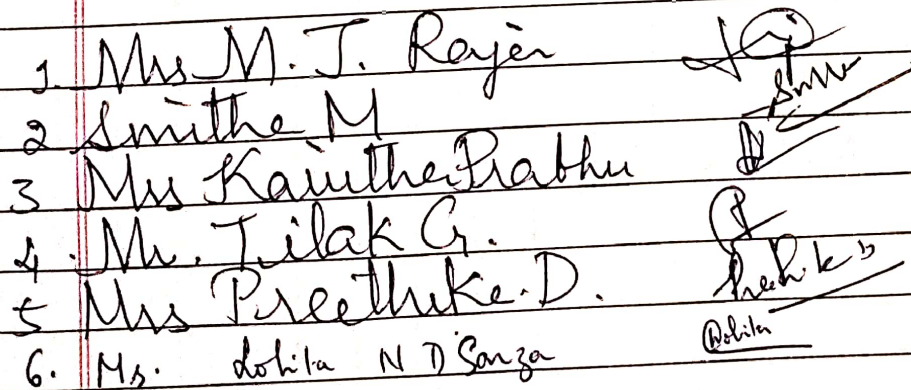 1. Mrs M. J. Rajen
2 Smitha M
3 Mrs Kavitha Prabhu
4. Mr. Tilak G.
5 Mrs Preethika. D.
6. Ms. Lolita N D'Souza Lolita